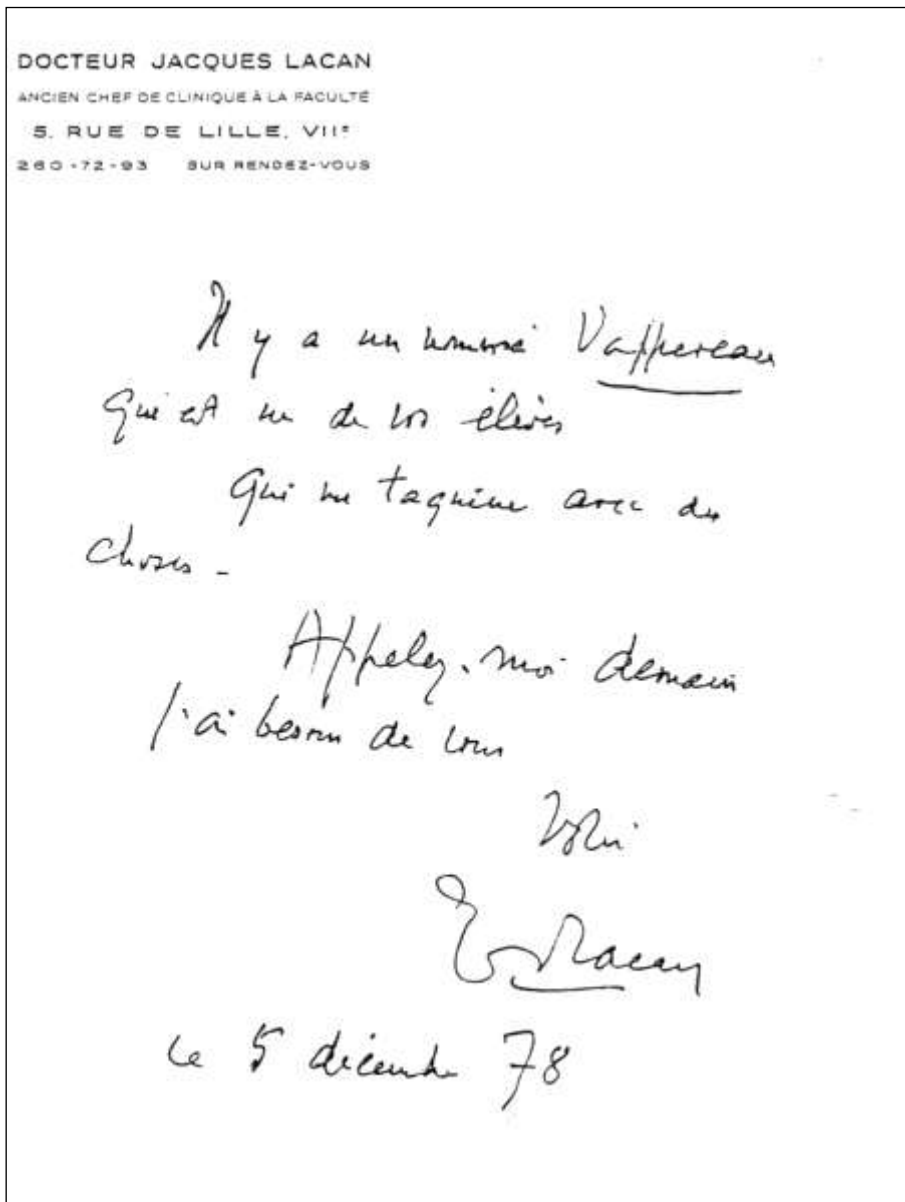 DOCTEUR JACQUES LACAN
ANCIEN CHEF DE CLINIQUE À LA FACULTÉ
5, RUE DE LILLE, VIIᵉ
260-72-93 SUR RENDEZ-VOUS
Il y a un nommé Vappereau
qui est un de vos élèves
Qui me taquine avec des
choses -
Appelez-moi demain
j'ai besoin de vous
Lacan
Le 5 décembre 78